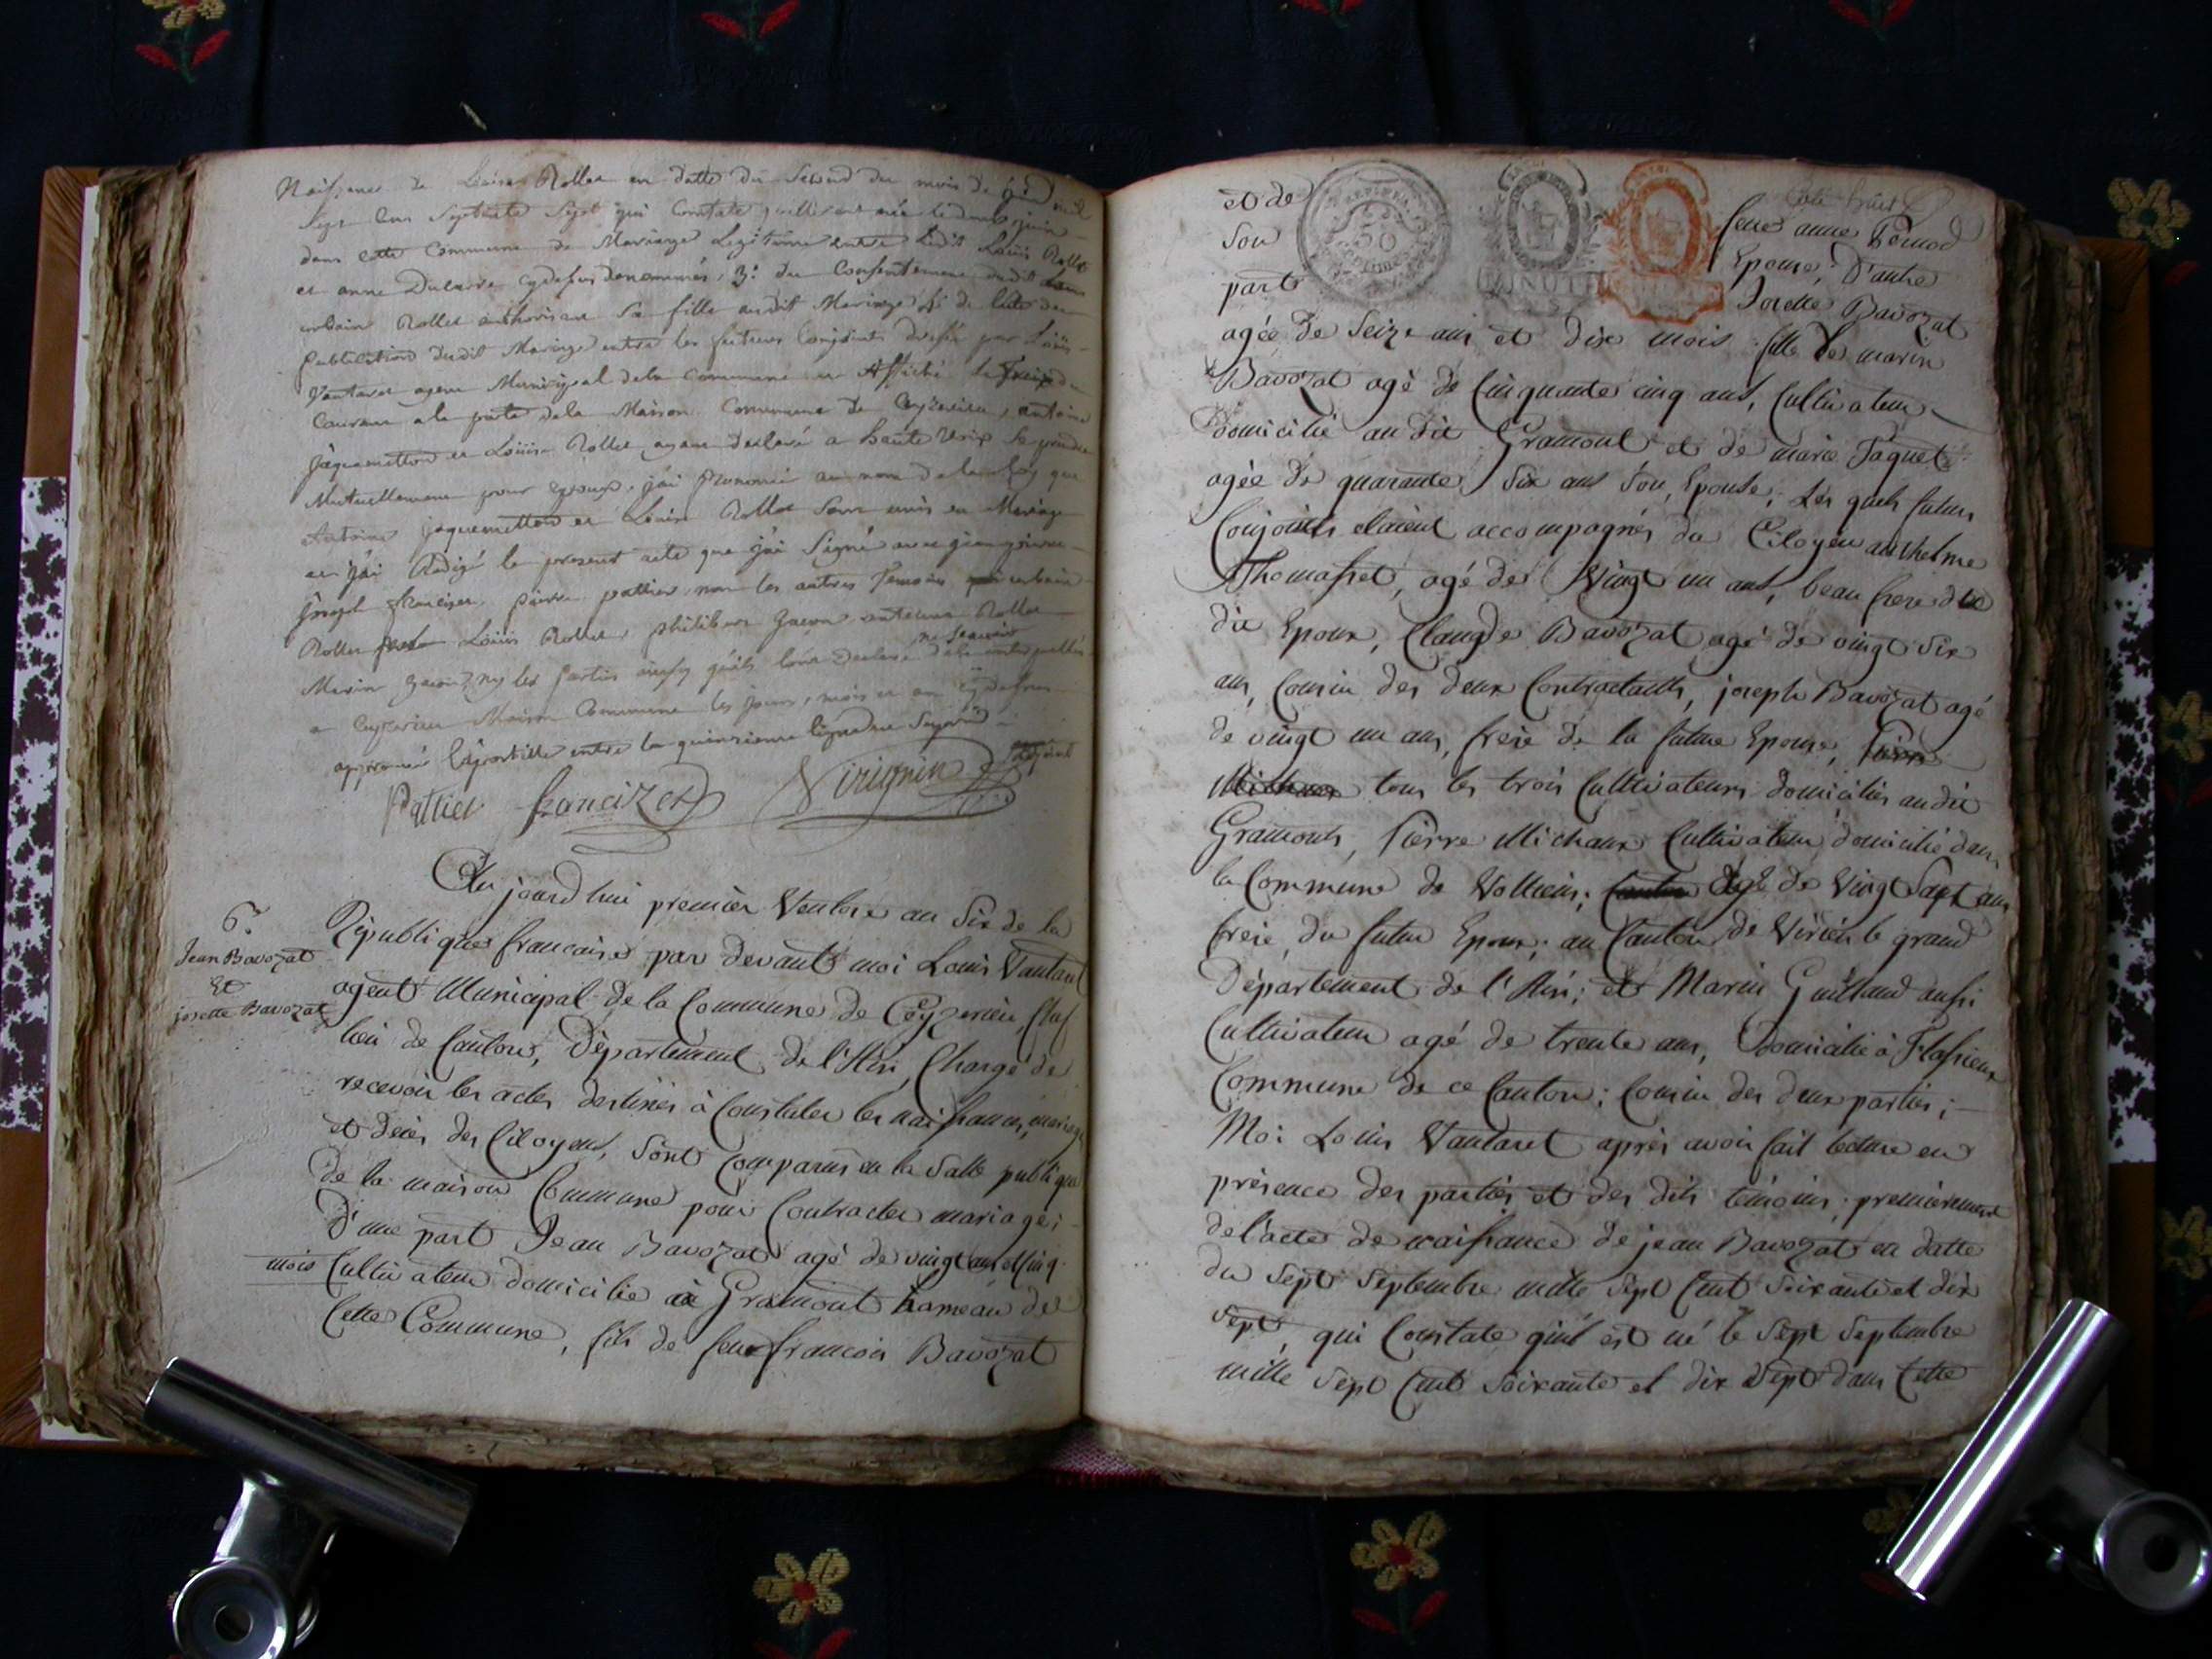 Naissance de Louise Rollet en datte du second du mois de juin mil
sept cens septante sept qui constate quelle est née le deux juin
dans cette Commune de Mariage Legitime entre ledit Louis Rollet
et anne cydessus denommés, 3.° du Consentement dudit
Rollet authorisant sa fille audit Mariage de lacte de
publication dudit Mariage entre les futeurs Conjoints dressé par Louis
Vantaret agent Municipal dela Commune et Affiché le
Courant a la porte dela Maison Commune de Ceyzerieu, antoine
jaquemetton et Louise Rollet ayant declaré a haute voix se prendre
Mutuellement pour epoux, jai prononcé au nom de la loy que
Antoine jaquemetton et Louise Rollet sont unis en Mariage
et jai Redigé le present acte que jai Signé avec
joseph francizet, pierre pattier, non les autres temoins
Rollet Louis Rollet, philibert Rollet
ne scavoir
Marin ny les parties ainsy quils lont declaré de ce interpellés
a Ceyzerieu Maison Commune les jour, mois et an cydessus
approuvé lapostille entre la quinzieme ligne
Pattier francizet Virignin adjoint
Au jourd'hui premier Ventose an Six de la
6.e
Jean Bavozat
Et
josette Bavozat
République francaise par devant moi Louis Vantaret
agent Municipal de la Commune de Ceyzerieu, Chef
lieu de Canton, Département de l'Ain, Chargé de
recevoir les actes destinés à Constater les naissances, mariages
et décès des Citoyens, Sont Comparus en la Salle publique
de la maison Commune pour Contracter mariage;
D'une part Jean Bavozat agé de vingt ans et Cinq
mois Cultivateur domicilié à Gramont hameau de
Cette Commune, fils de feu francois Bavozat
et de
feue anne Pernod
Son
Epouse; D'autre
part
Josette Bavozat
agée de Seize ans et dix mois fille de marin
Bavozat agé de Cinquante cinq ans, Cultivateur
domicilié au dit Gramont et de marie Jaquet
agée de quarante Six ans Son Epouse; Les quels futurs
Conjoints étaient accompagnés du Citoyen anthelme
Thomasset, agé de Vingt un ans, beau frere du
dit Epoux, Claude Bavozat agé de vingt Six
ans, Cousin des deux Contractants, joseph Bavozat agé
de vingt un ans, frere de la future Epouse, Pierre
Michaux tous les trois Cultivateurs domiciliés au dit
Gramont, Pierre Michaux Cultivateur domicilié dans
la Commune de Vollien; Canton Agé de Vingt Sept ans
frere du futur Epoux; au Canton de Virieu le grand
Département de l'Ain; et Marin Guilland aussi
Cultivateur agé de trente ans, Domicilié à Flaxieux
Commune de ce Canton; Cousin des deux parties;
Moi Louis Vantaret après avoir fait lecture en
présence des parties et des dits témoins; premièrement
de l'acte de naissance de jean Bavozat en datte
du Sept Septembre mille Sept Cent Soixante et dix
Sept, qui Constate quil est né le Sept Septembre
mille Sept Cent Soixante et dix Sept dans Cette